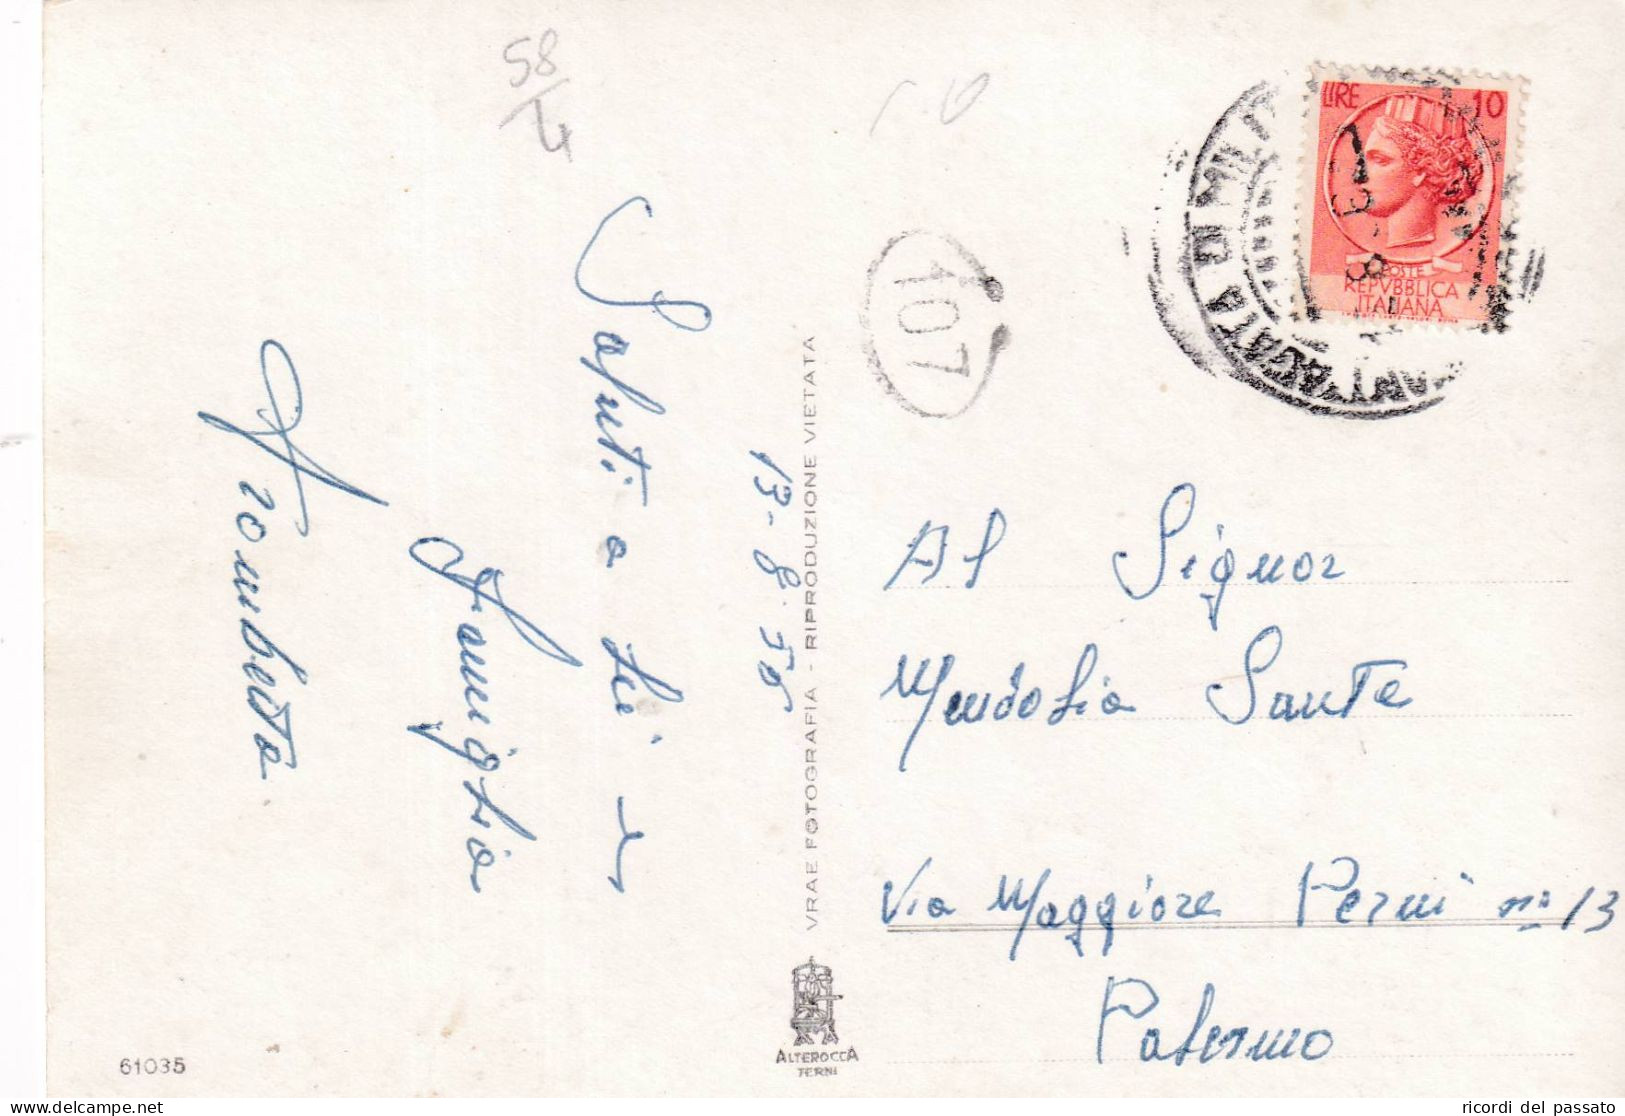 58/4
LIRE 10
POSTE
REPVBBLICA
ITALIANA
SANT'AGATA DI MILIT
13-8
107
Saluti a Lei e
Famiglia
Trombetta
13-8-58
VRAE FOTOGRAFIA - RIPRODUZIONE VIETATA
Al Signor
Mendolia Sante
Via Maggiore Perni nº 13
Palermo
ALTEROCCA
TERNI
61035
delcampe.net
ricordi del passato